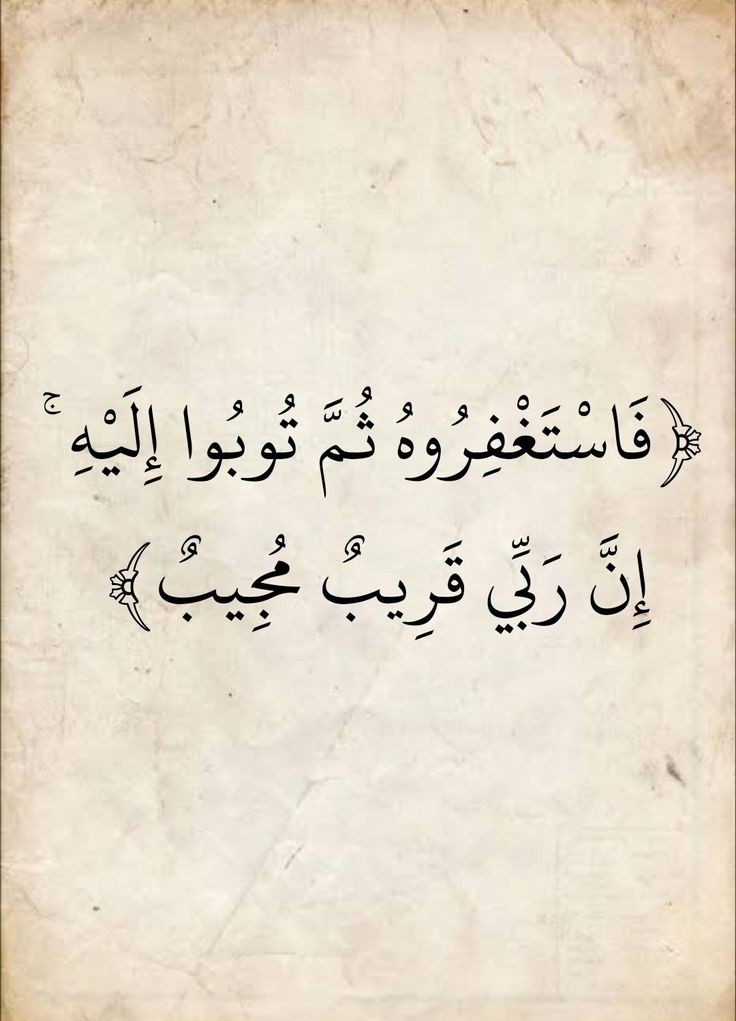 ﴿ فَاسْتَغْفِرُوهُ ثُمَّ تُوبُوا إِلَيْهِ ۚ
إِنَّ رَبِّي قَرِيبٌ مُجِيبٌ ﴾